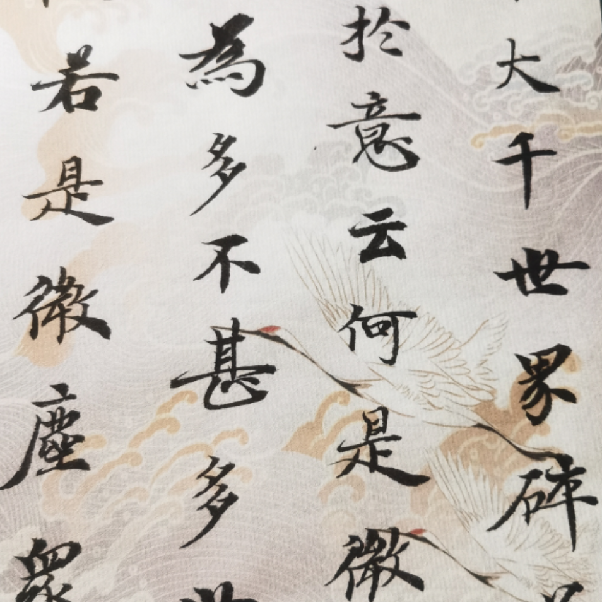 大千世界碎
於意云何是微
為多不甚多世
若是微塵眾